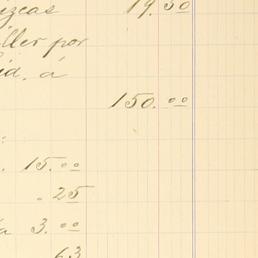 izcas 19.50
iller por
id. á
150.00
:
. 15.00
. 25
a 3.00
63